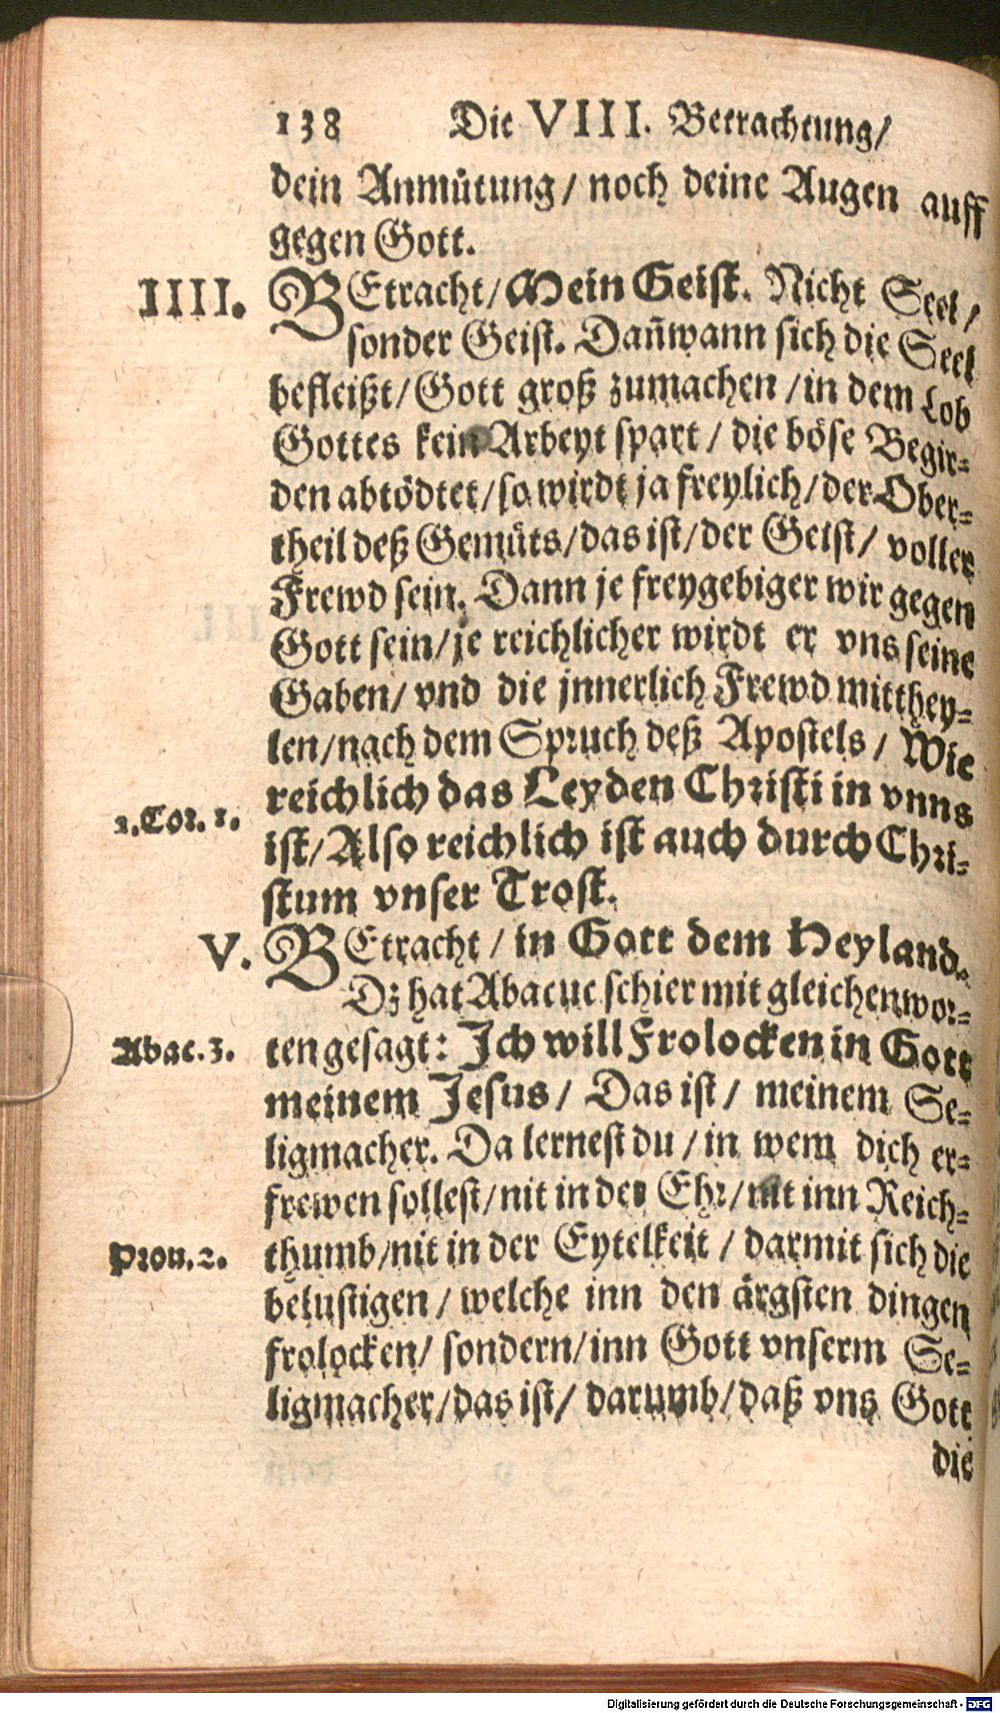 138 Die VIII. Betrachtung/
dein Anmůtung/ noch deine Augen auff
gegen Gott.
IIII. BEtracht/ Mein Geist. Nicht Seel/
sonder Geist. Dañ wann sich die Seel
befleißt/ Gott groß zumachen / in dem Lob
Gottes kein Arbeyt spart / die böse Begir-
den abtödtet/ so wirdt ja freylich/ der Ober-
theil deß Gemůts/ das ist/ der Geist/ voller
Frewd sein. Dann je freygebiger wir gegen
Gott sein/ je reichlicher wirdt er vns seine
Gaben/ vnd die jnnerlich Frewd mitthey-
len/ nach dem Spruch deß Apostels / Wie
reichlich das Leyden Christi in vnns
2. Cor. 1. ist/ Also reichlich ist auch durch Chri-
stum vnser Trost.
V. BEtracht / in Gott dem Heyland.
Dz hat Abacuc schier mit gleichen wor-
Abac. 3. ten gesagt: Ich will Frolocken in Gott
meinem Jesus/ Das ist/ meinem Se-
ligmacher. Da lernest du / in wem dich er-
frewen sollest/ nit in der Ehr/ nit inn Reich-
Prou. 2. thumb/ nit in der Eytelkeit / darmit sich die
belustigen / welche inn den ärgsten dingen
frolocken/ sondern/ inn Gott vnserm Se-
ligmacher/ das ist/ darumb/ daß vns Gott
die
Digitalisierung gefördert durch die Deutsche Forschungsgemeinschaft - DFG